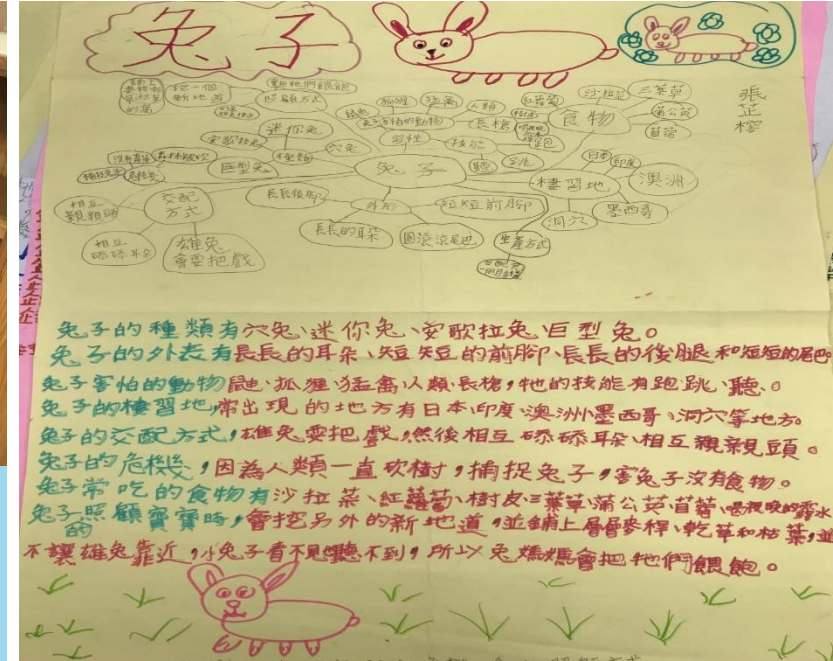 兔子
張芷榕
食物
沙拉菜
三葉草
蒲公英
苜蓿
紅蘿蔔
樹皮
人類
猛禽
狐狸
鼬
長槍
害怕的動物
習性
技能
聽
跑跳
照顧方式
挖一個新地道
迷你兔
安歌拉兔
穴兔
巨型兔
種類
兔子
棲習地
日本
印度
澳洲
墨西哥
洞穴
交配方式
相互親親頭
相互舔舔耳朵
雄兔會耍把戲
外形
長長後腳
短短前腳
長長的耳朵
圓滾滾尾巴
生產方式
兔子的種類有穴兔、迷你兔、安歌拉兔、巨型兔。
兔子的外表有長長的耳朵、短短的前腳、長長的後腿和短短的尾巴
兔子害怕的動物鼬、狐狸、猛禽、人類、長槍,牠的技能有跑跳、聽、。
兔子的棲習地,常出現的地方有日本、印度、澳洲、墨西哥、洞穴等地方。
兔子的交配方式,雄兔耍把戲,然後相互舔舔耳朵、相互親親頭。
兔子的危機,因為人類一直砍樹,捕捉兔子,害兔子沒有食物。
兔子常吃的食物有沙拉菜、紅蘿蔔、樹皮、三葉草、蒲公英、苜蓿、喝夜晚的露水
兔子照顧寶寶的時,會挖另外的新地道,並鋪上層層麥稈、乾草和枯葉,並
不讓雄兔靠近,小兔子看不見、聽不到,所以兔媽媽會把牠們餵飽。